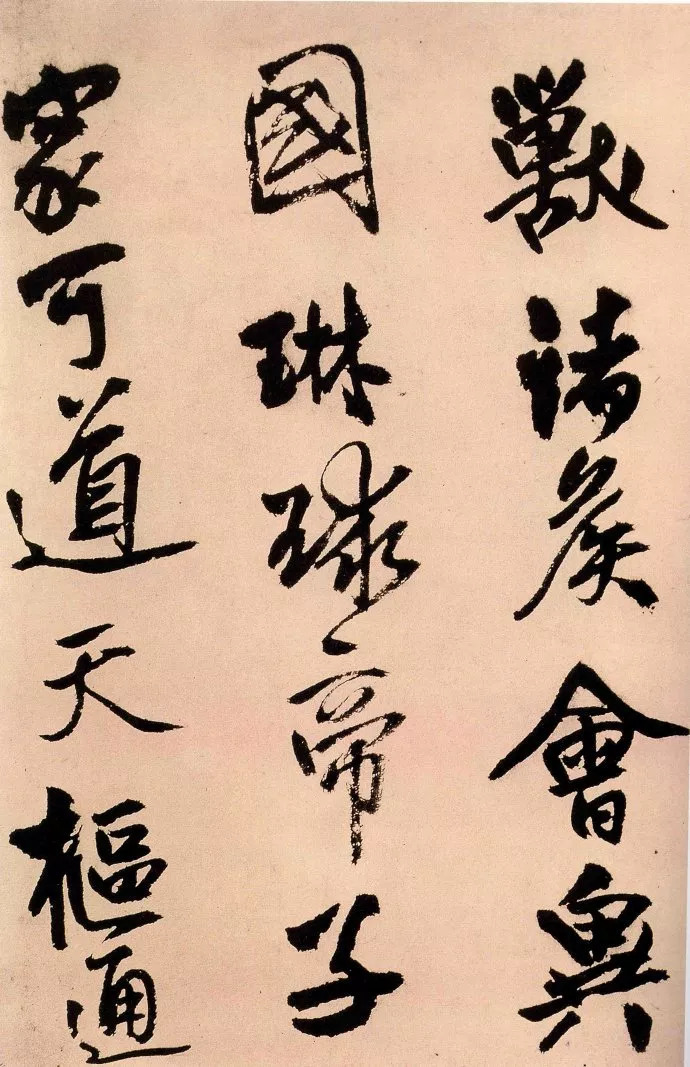 獸諸侯會輿
國琳球帝子
家可道天樞通